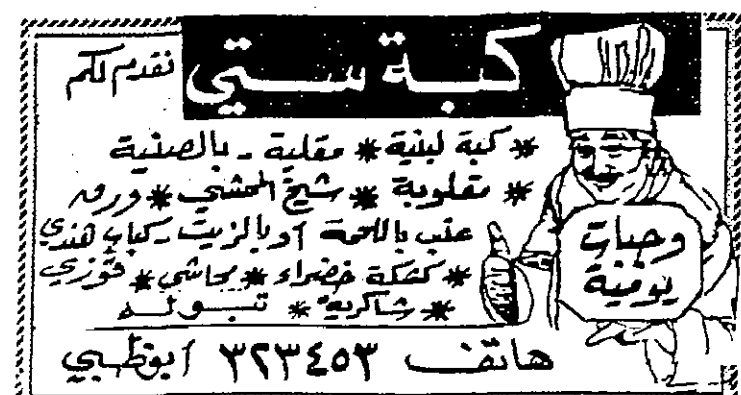 كبة ستي
نقدم لكم
* كبة لبنية * مقلية - بالصينية
* مقلوبة * شيخ المحشي * ورق
عنب باللحمة أو بالزيت - كباب هندي
* كشكة خضراء * محاشي * قوزي
* شاكرية * تبولة
وجبات
يومية
هاتف ٣٢٣٤٥٣ أبوظبي